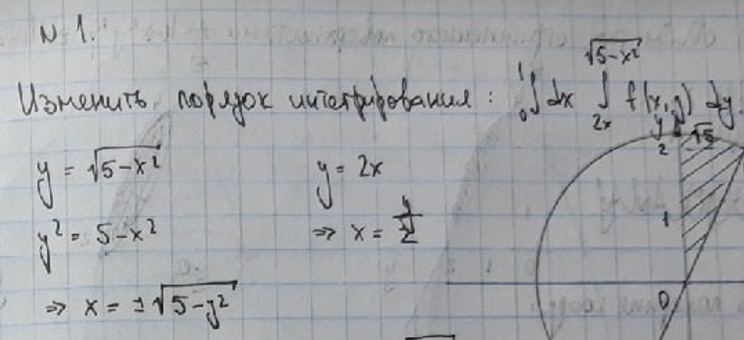 N 1.
Изменить порядок интегрирования: ₀∫¹ dx ∫_{2x}^{√(5-x²)} f(x,y) dy.
y = √(5-x²) y = 2x
y² = 5-x² ⇒ x = y/2
⇒ x = ±√(5-y²)
y √5
2
1
0